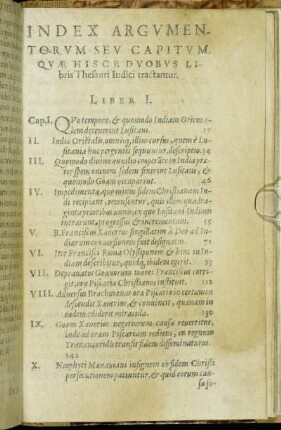 INDEX ARGVMEN-
TORVM SEV CAPITVM,
QVÆ HISCE DVOBVS LI-
bris Thesauri Indici tractantur.
LIBER I.
Cap. I. QVo tempore, & quomodo Indiam Orienta-
lem detexerint Lusitani. 17
II. India Orientalis, omniúq; illius cursus, quem è Lu-
sitania huc pergentes sequuntur, descriptio. 24
III. Quomodo diuino auxilio cooperante in India præ-
ter spem euenere sedem fixerint Lusitani, &
quomodo Goam occuparint. 46
IV. Impedimenta, quo minus fidem Christianam In-
di recipiant, recensentur, quis illius quadra-
ginta prioribus annis, ex quo Lusitani Indiam
intrarunt, progressus & incrementum. 55
V. B. Franciscus Xauerius singillatim à Deo ad In-
diarum conuersionem fuit designatus. 71
VI. Iter Francisci Roma Olysiponem & hinc in In-
diam describitur, & quid ibidem egerit. 93
VII. Deprauatos Goanorum mores Franciscus corri-
git, ora Piscaria Christianos instituit. 112
VIII. Aduersus Brachmanas ora Piscaria in certamen
descendit Xauerius, & conuincit, quanam in
eadem ediderit miracula. 130
IX. Goam Xauerius negotiorum causa reuertitur,
inde ad oram Piscariam rediens, in regnum
Trauancoridis transit fidem disseminaturus.
142
X. Neophyti Manarani insignem ob fidem Christi
persecutionem patiuntur, & quid eorum cau-
sa su-